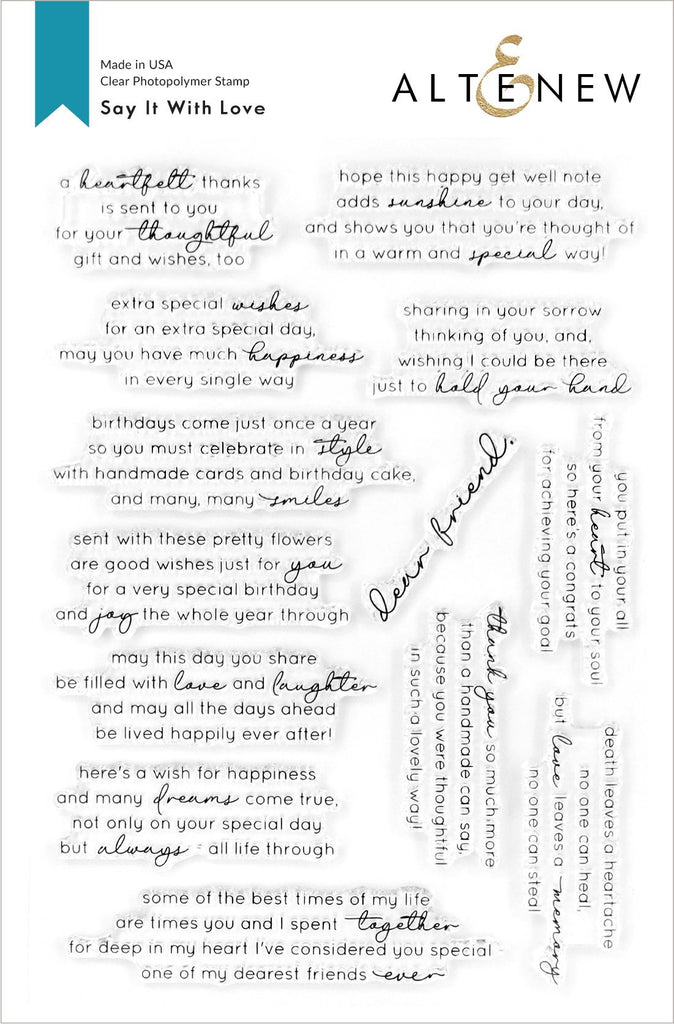 Made in USA
Clear Photopolymer Stamp
Say It With Love
ALTENEW
a heartfelt thanks
is sent to you
for your thoughtful
gift and wishes, too
hope this happy get well note
adds sunshine to your day,
and shows you that you're thought of
in a warm and special way!
extra special wishes
for an extra special day,
may you have much happiness
in every single way
sharing in your sorrow
thinking of you, and,
wishing I could be there
just to hold your hand
birthdays come just once a year
so you must celebrate in style
with handmade cards and birthday cake,
and many, many smiles
dear friend,
you put in your all
from your heart to your soul
so here's a congrats
for achieving your goal
sent with these pretty flowers
are good wishes just for you
for a very special birthday
and joy the whole year through
thank you so much more
than a handmade can say,
because you were thoughtful
in such a lovely way!
may this day you share
be filled with love and laughter
and may all the days ahead
be lived happily ever after!
death leaves a heartache
no one can heal,
but love leaves a memory
no one can steal
here's a wish for happiness
and many dreams come true,
not only on your special day
but always - all life through
some of the best times of my life
are times you and I spent together
for deep in my heart I've considered you special
one of my dearest friends ever